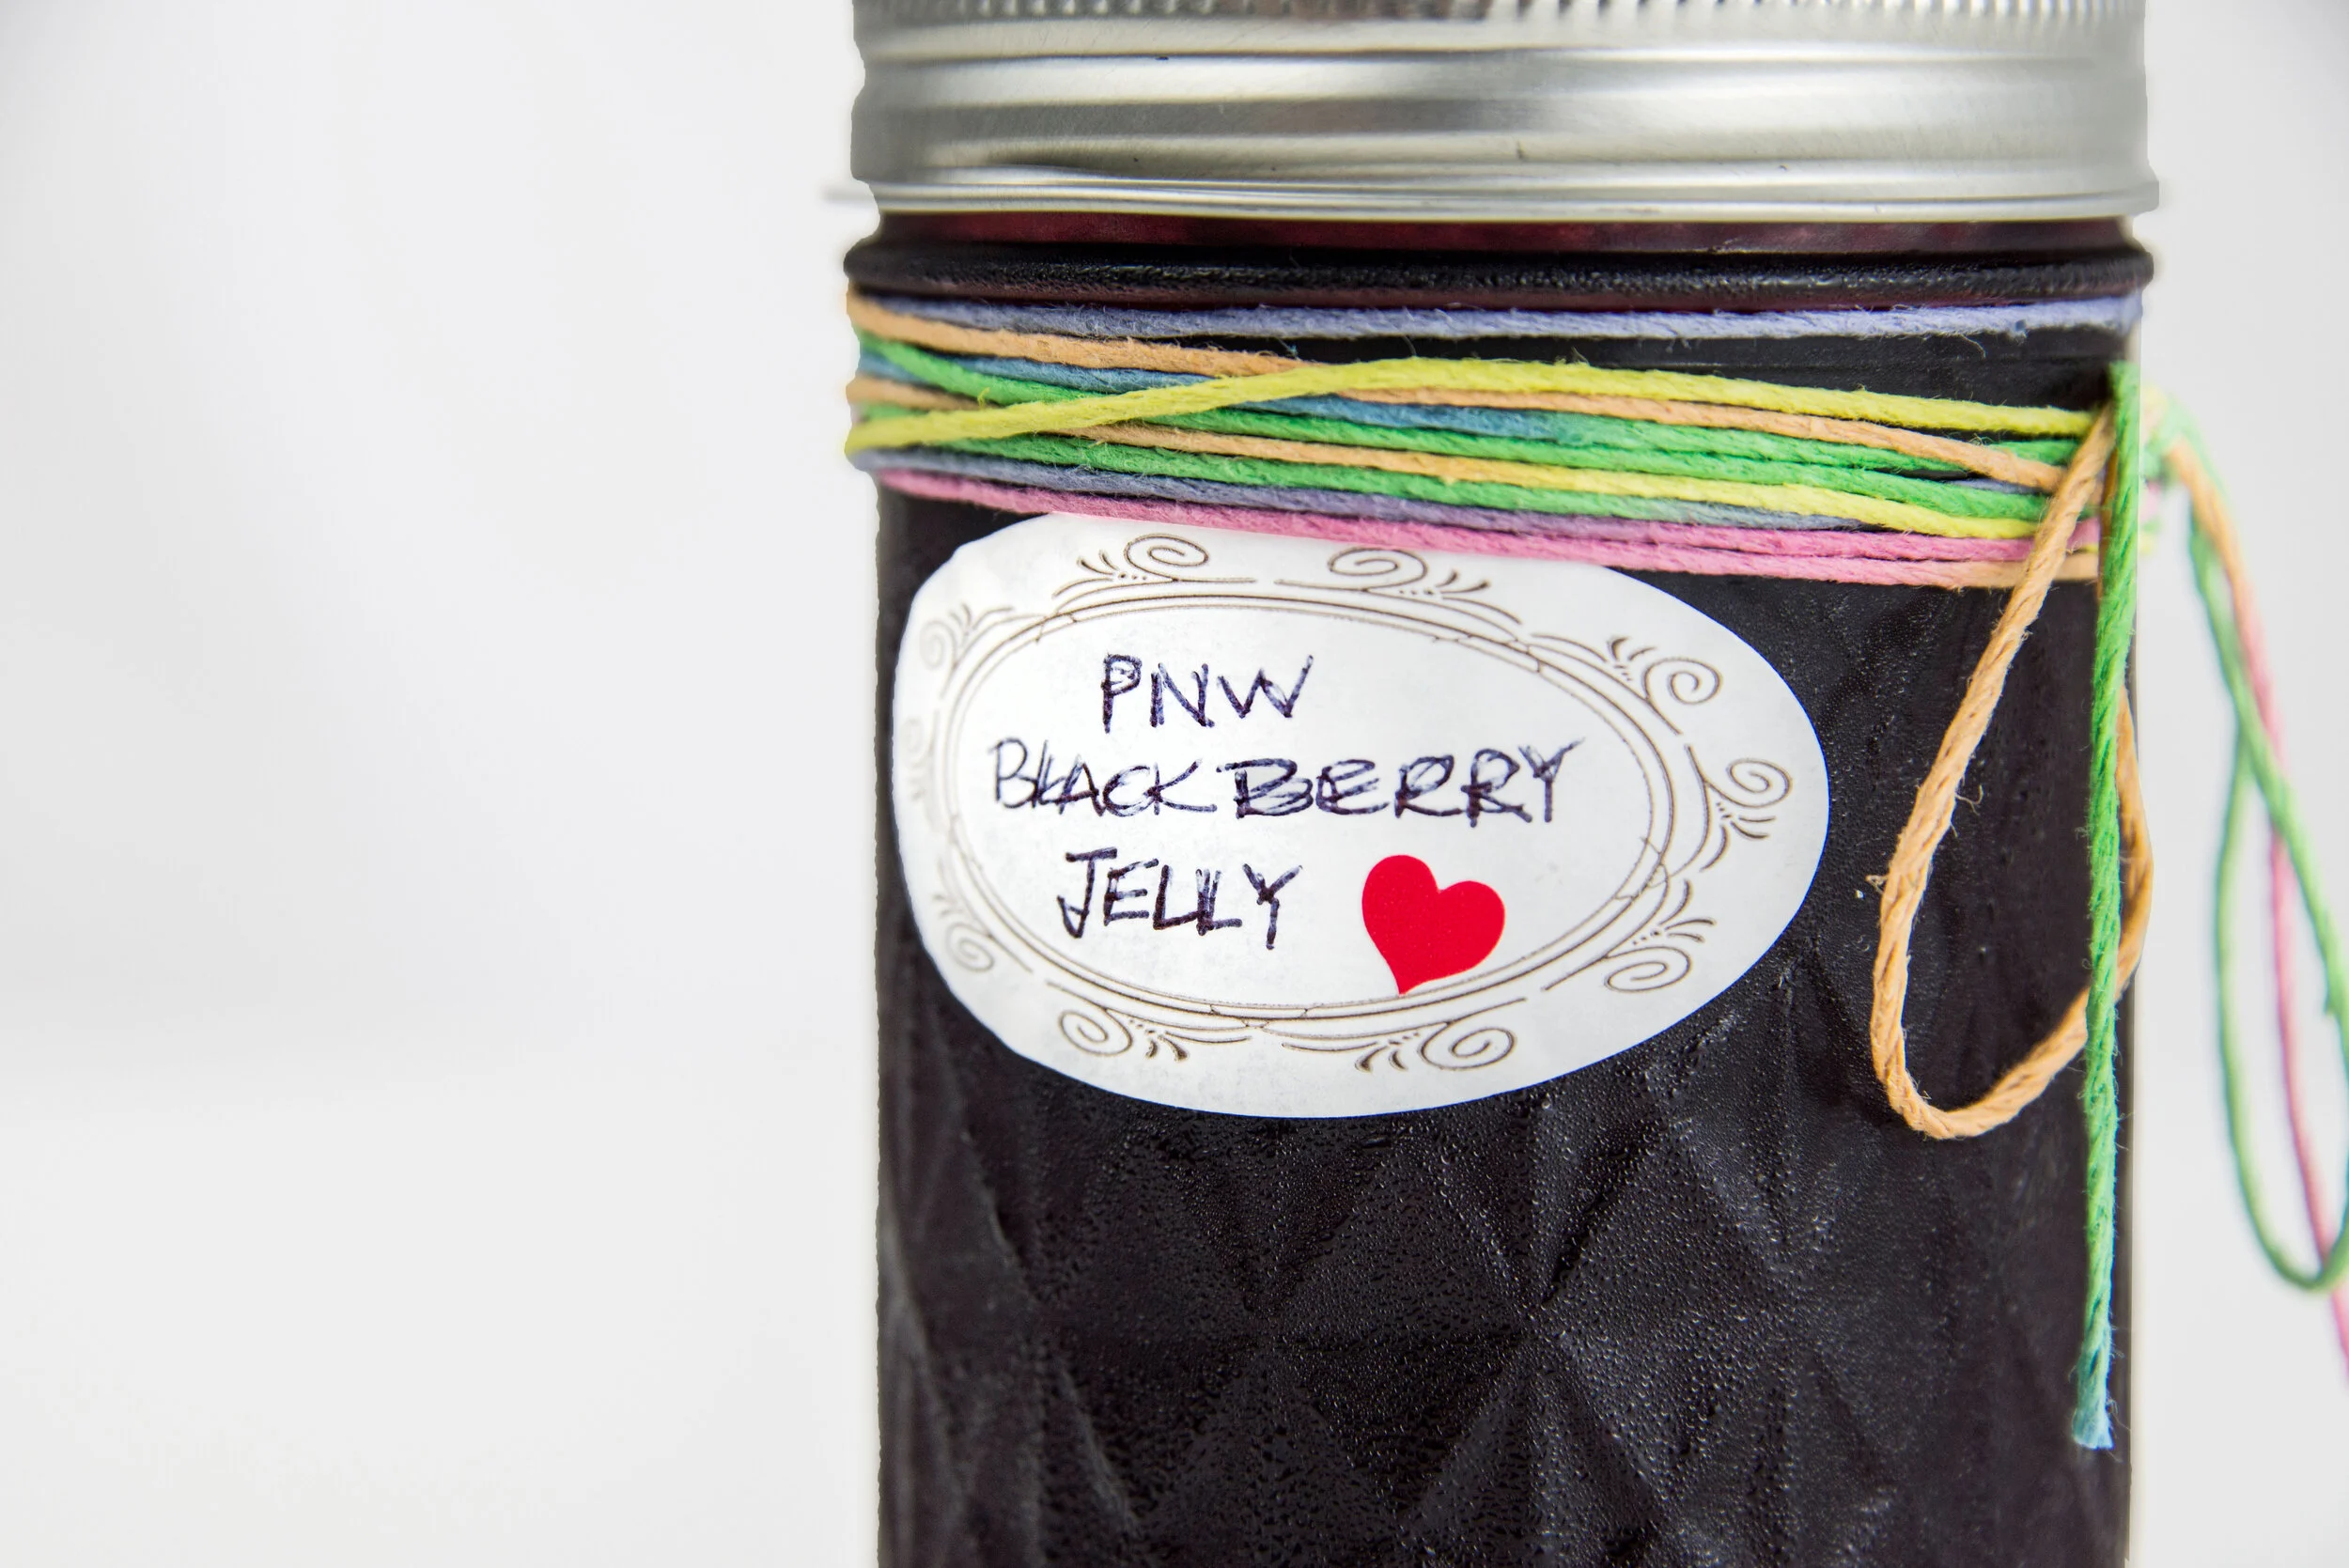 PNW
BLACKBERRY
JELLY